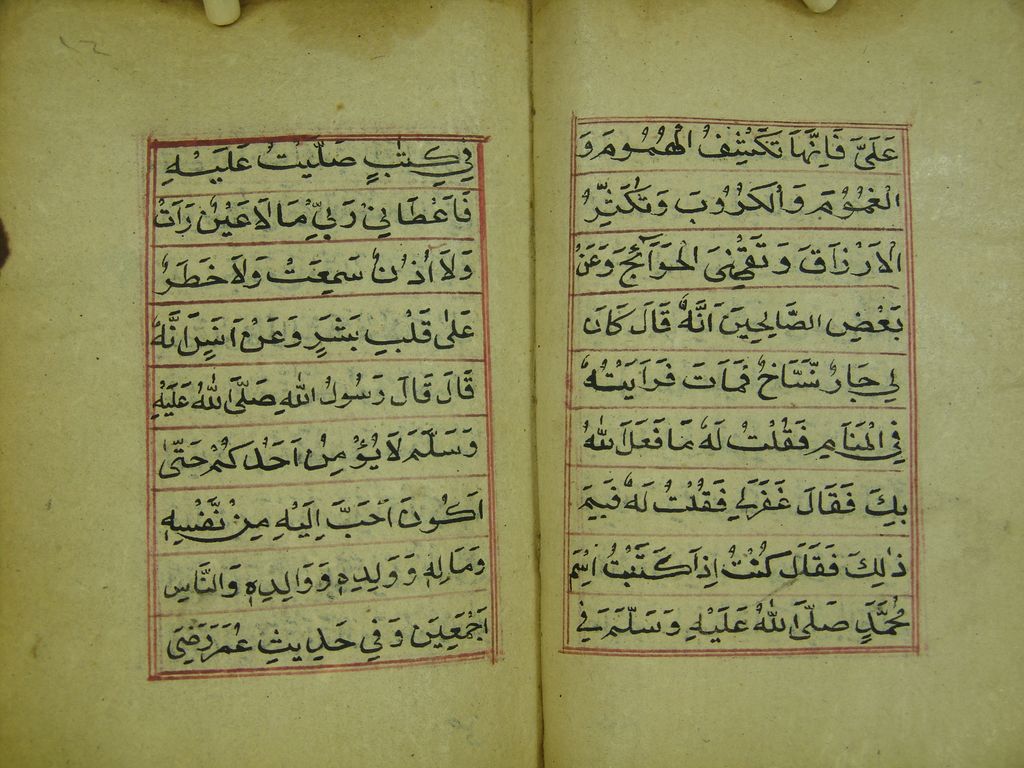 عَلَىَّ فَاِنَّهَا تَكْشِفُ الْهُمُومَ وَ
الْغُمُومَ وَالْكُرُوبَ وَتُكَثِّرُ
الْاَرْزَاقَ وَ تَقْضِى الْحَوَآئِجَ وَعَنْ
بَعْضِ الصَّالِحِينَ اَنَّهُ قَالَ كَانَ
لِى جَارٌ نَسَّاخٌ فَمَاتَ فَرَاَيْتُهُ
فِى الْمَنَامِ فَقُلْتُ لَهُ مَا فَعَلَ اللهُ
بِكَ فَقَالَ غَفَرَلِى فَقُلْتُ لَهُ فَبِمَ
ذٰلِكَ فَقَالَ كُنْتُ اِذَا كَتَبْتُ اسْمَ
مُحَمَّدٍ صَلَّى اللهُ عَلَيْهِ وَسَلَّمَ فِى
فِى كِتٰبٍ صَلَّيْتُ عَلَيْهِ
فَاَعْطَانِى رَبِّى مَا لَا عَيْنٌ رَاَتْ
وَلَا اُذُنٌ سَمِعَتْ وَلَا خَطَرَ
عَلٰى قَلْبِ بَشَرٍ وَعَنْ اَنَسٍ اَنَّهُ
قَالَ قَالَ رَسُولُ اللهِ صَلَّى اللهُ عَلَيْهِ
وَسَلَّمَ لَا يُؤْمِنُ اَحَدُكُمْ حَتّٰى
اَكُونَ اَحَبَّ اِلَيْهِ مِنْ نَفْسِهِ
وَمَالِهِ وَوَلَدِهِ وَوَالِدِهِ وَالنَّاسِ
اَجْمَعِينَ وَفِى حَدِيثِ عُمَرَ رَضِىَ
١٢